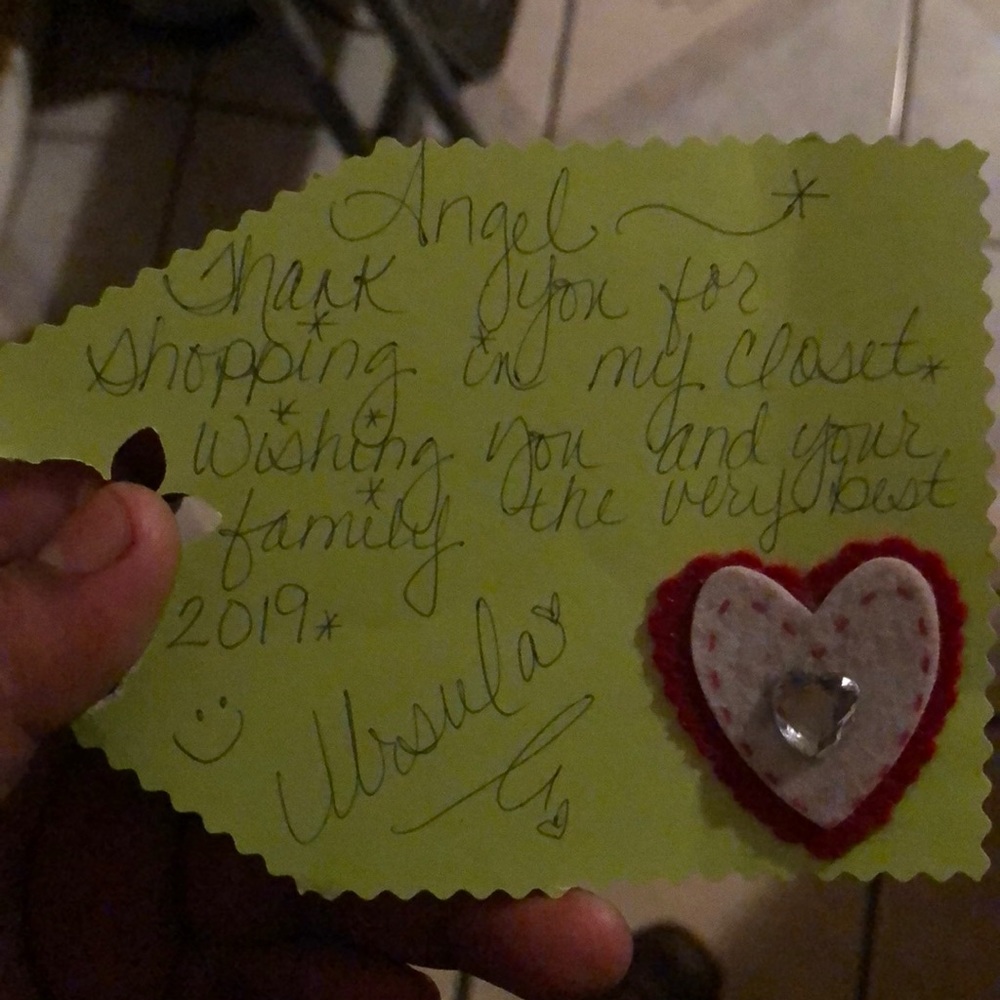 Angel
Thank you for
shopping in my closet*
Wishing you and your
family the very best
2019*
Ursula